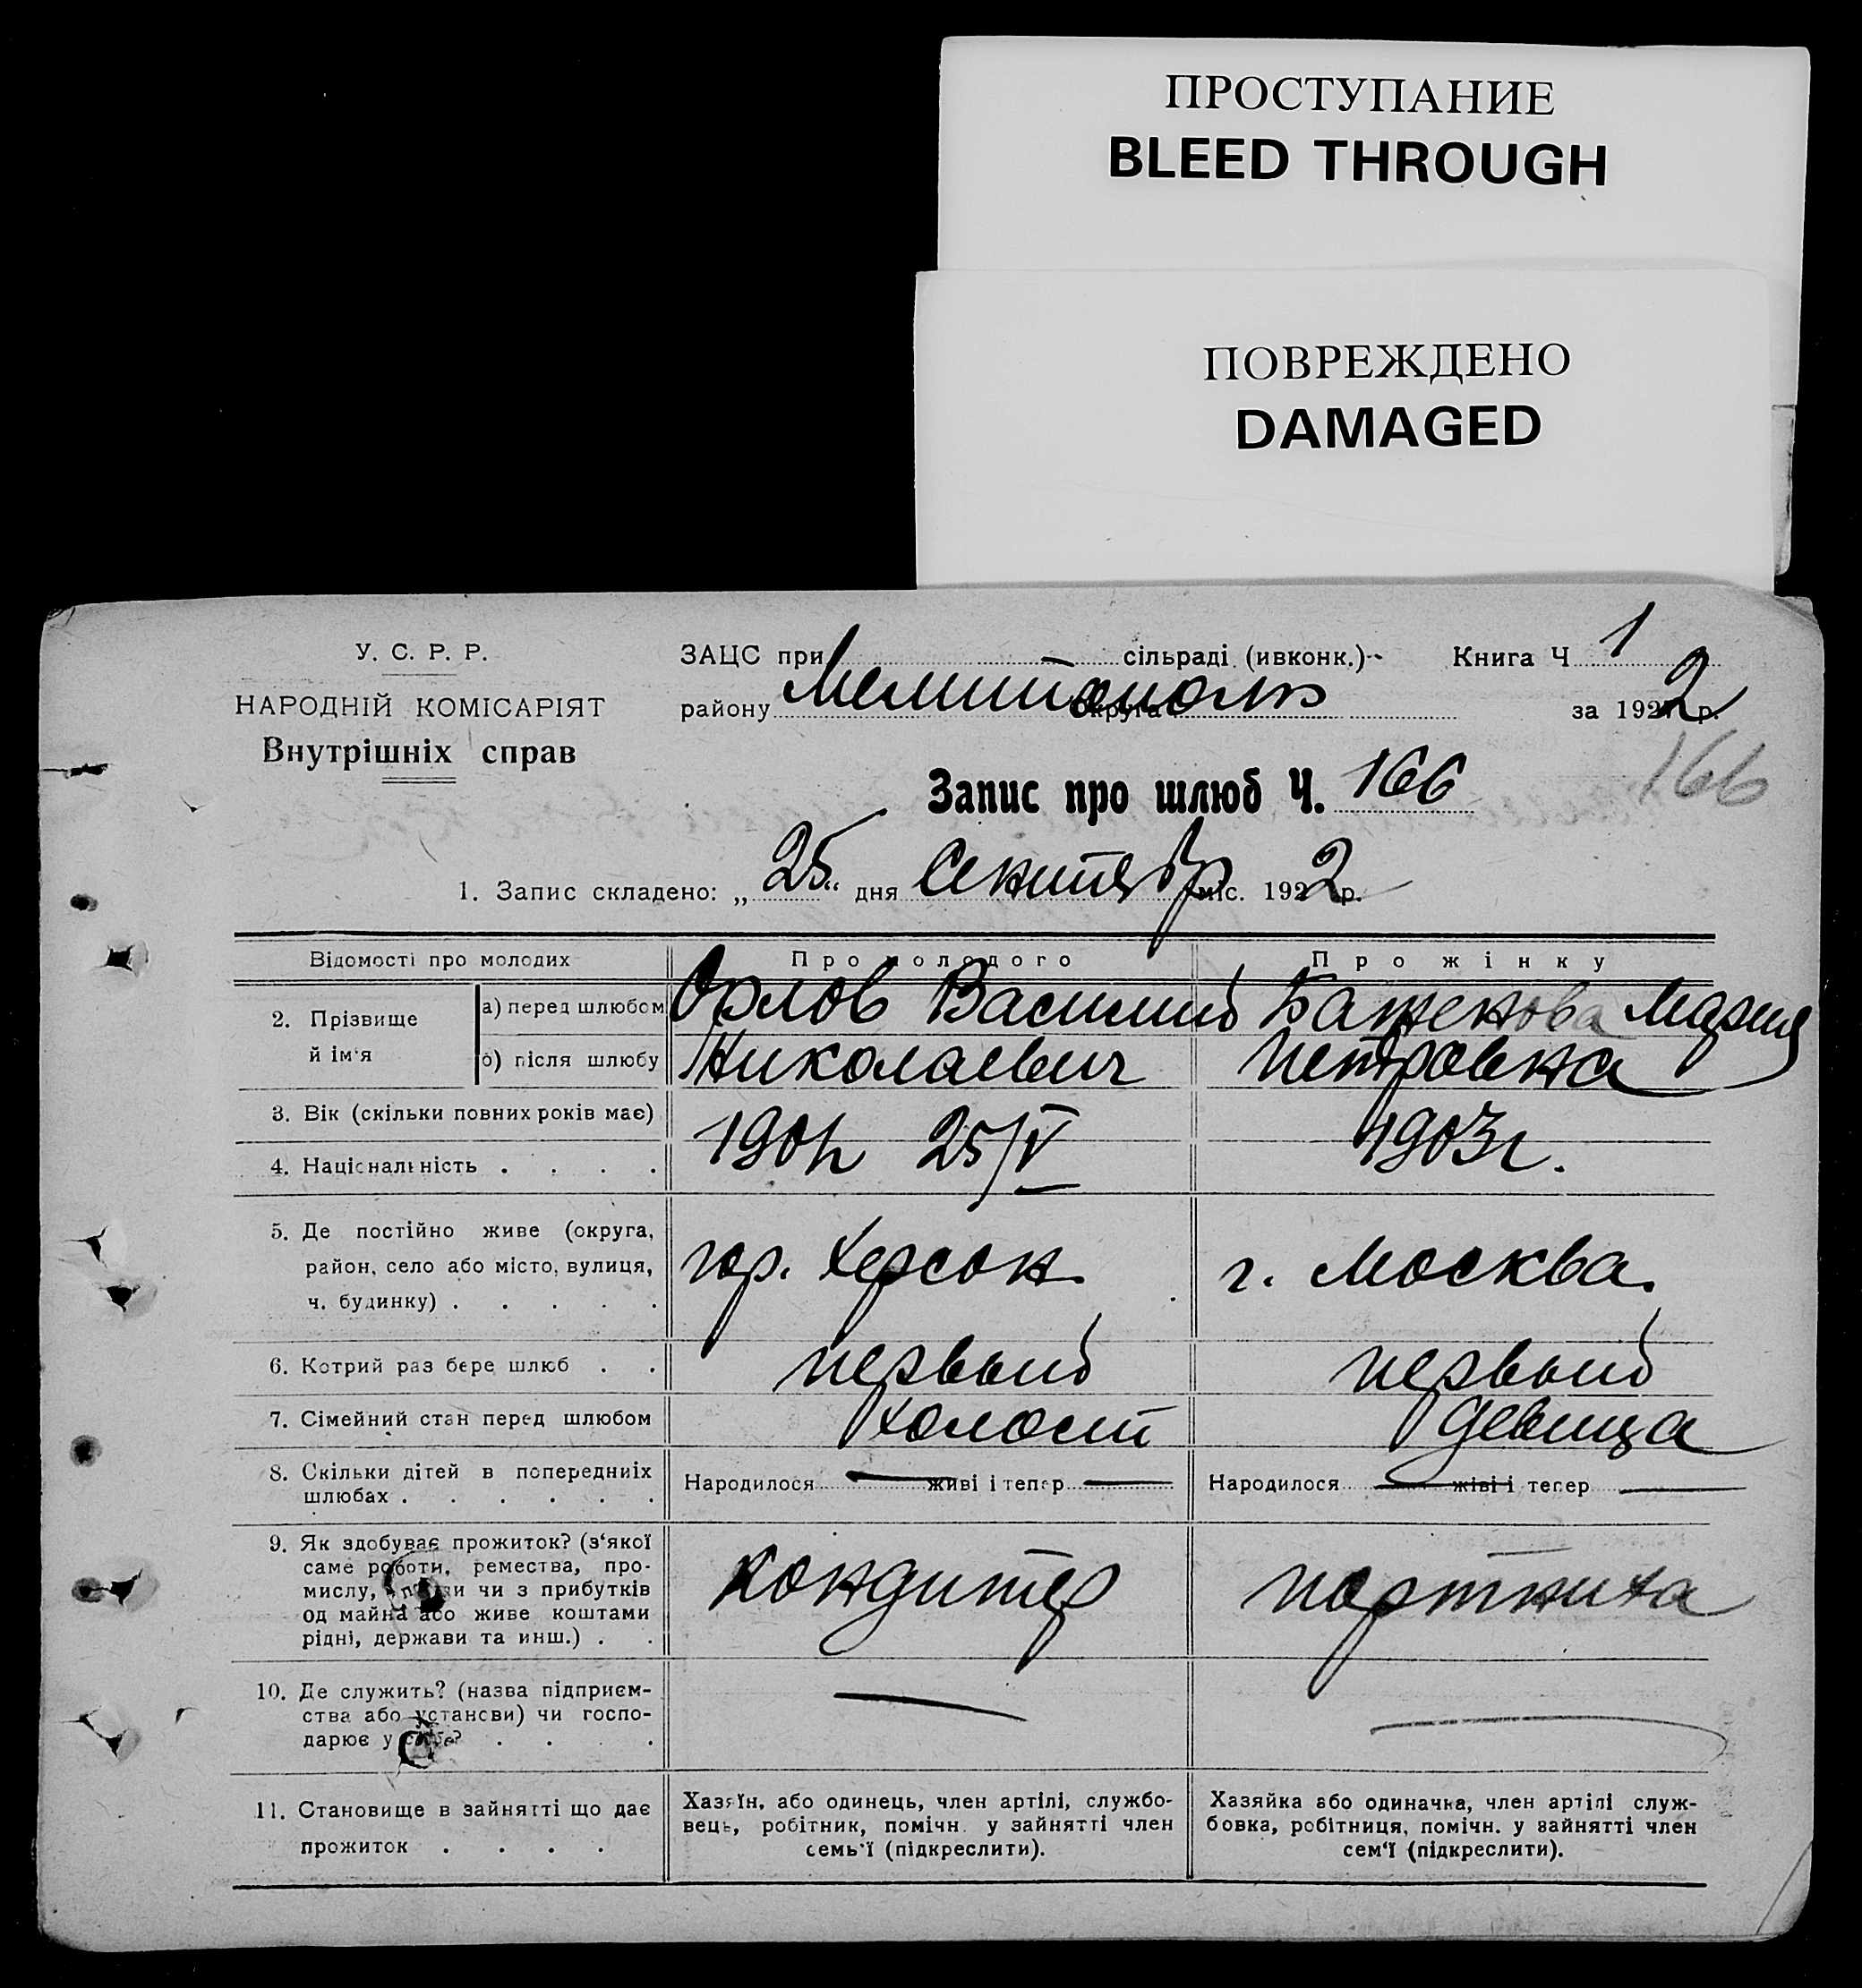 ПРОСТУПАНИЕ
BLEED THROUGH
ПОВРЕЖДЕНО
DAMAGED
У. С. Р. Р.
НАРОДНІЙ КОМІСАРІЯТ
Внутрішніх справ
ЗАЦС при сільраді (ивконк.)
Книга Ч 1
району Мелитополь округа
за 1922 р.
Запис про шлюб Ч. 166
166
1. Запис складено: „25“ дня Сентябр міс. 1922 р.
Відомості про молодих
Про молодого
Про жінку
2. Прізвище й ім'я
а) перед шлюбом
Орлов Василий
Баженова Мария
б) після шлюбу
Николаевич
Петровна
3. Вік (скільки повних років має)
4. Національність . . . .
1901г 25/V
1903г.
5. Де постійно живе (округа,
район, село або місто, вулиця,
ч. будинку) . . . . .
гор. Херсон.
г. Москва.
6. Котрий раз бере шлюб . .
первый
первый
7. Сімейний стан перед шлюбом
холост
девица
8. Скільки дітей в попередниіх
шлюбах . . . . . .
Народилося — живі і тепер —
Народилося — живі і тепер —
9. Як здобуває прожиток? (з'якої
саме роботи, ремества, про-
мислу, чи з прибутків
од майна або живе коштами
рідні, держави та инш.) . .
кондитер
портниха
10. Де служить? (назва підприєм-
ства або установи) чи госпо-
дарює у себе? . . . .
—
—
11. Становище в зайнятті що дає
прожиток . . . .
Хазяїн, або одинець, член артілі, службо-
вець, робітник, помічн. у зайнятті член
семь'ї (підкреслити).
Хазяйка або одиначка, член артілі служ-
бовка, робітниця, помічн. у зайнятті член
сем'ї (підкреслити).